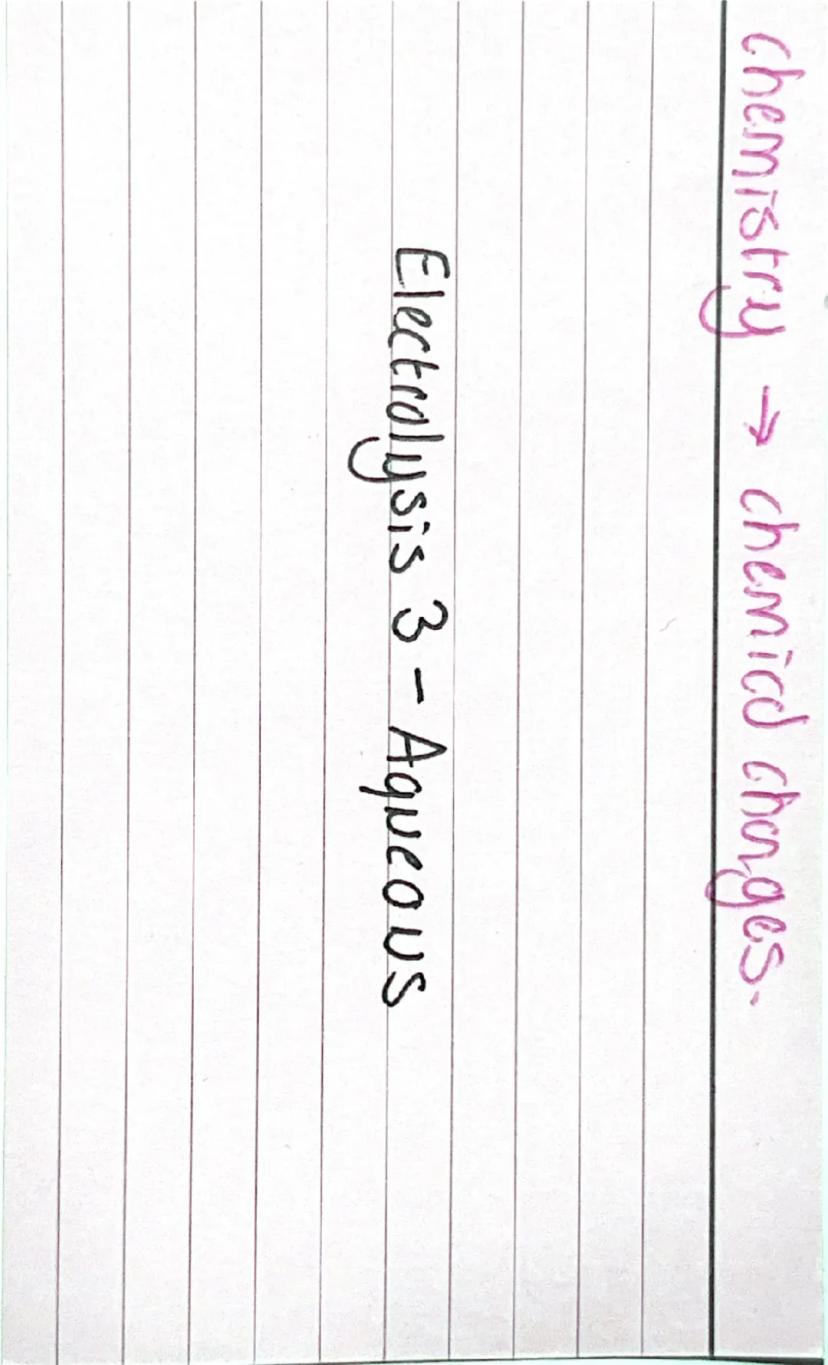 chemistry → chemical changes.
Electrolysis 3 - Aqueous